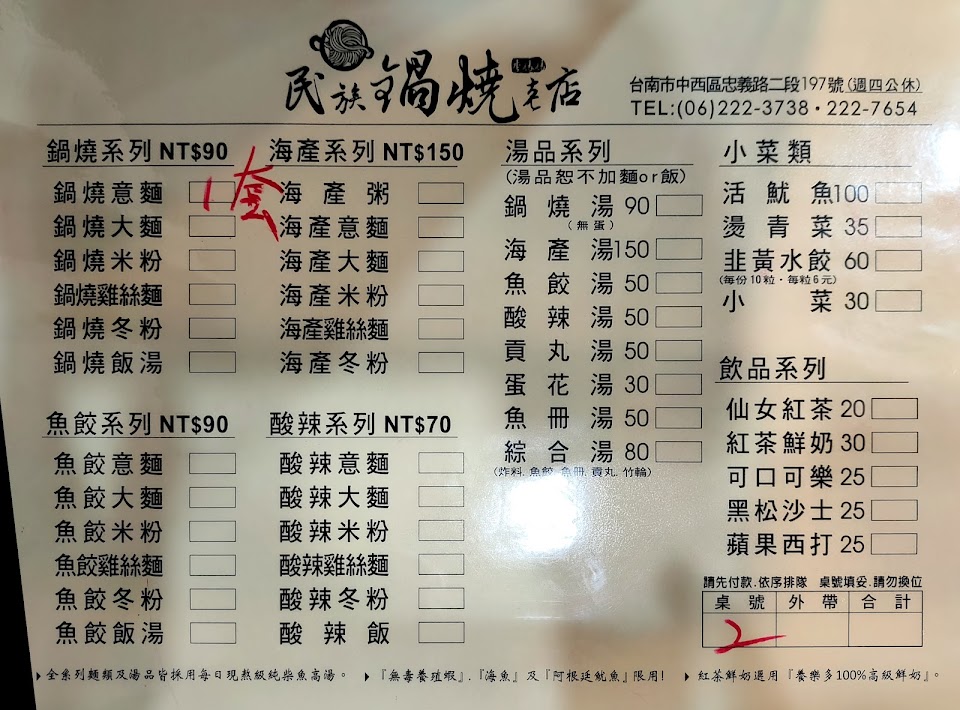 民族鍋燒老店
台南市中西區忠義路二段197號(週四公休)
TEL:(06)222-3738・222-7654
鍋燒系列 NT$90
鍋燒意麵 1
鍋燒大麵
鍋燒米粉
鍋燒雞絲麵
鍋燒冬粉
鍋燒飯湯
魚餃系列 NT$90
魚餃意麵
魚餃大麵
魚餃米粉
魚餃雞絲麵
魚餃冬粉
魚餃飯湯
海產系列 NT$150
海產粥
海產意麵
海產大麵
海產米粉
海產雞絲麵
海產冬粉
酸辣系列 NT$70
酸辣意麵
酸辣大麵
酸辣米粉
酸辣雞絲麵
酸辣冬粉
酸辣飯
湯品系列
(湯品恕不加麵or飯)
鍋燒湯 90
(無蛋)
海產湯150
魚餃湯 50
酸辣湯 50
貢丸湯 50
蛋花湯 30
魚冊湯 50
綜合湯 80
(炸料.魚餃.魚冊.貢丸.竹輪)
小菜類
活魷魚100
燙青菜 35
韭黃水餃 60
(每份10粒・每粒6元)
小菜 30
飲品系列
仙女紅茶 20
紅茶鮮奶 30
可口可樂 25
黑松沙士 25
蘋果西打 25
請先付款.依序排隊 桌號填妥.請勿換位
桌號 外帶 合計
2
全系列麵類及湯品皆採用每日現熬級純柴魚高湯。
『無毒養殖蝦』.『海魚』及『阿根廷魷魚』限用!
紅茶鮮奶選用『養樂多100%高級鮮奶』。